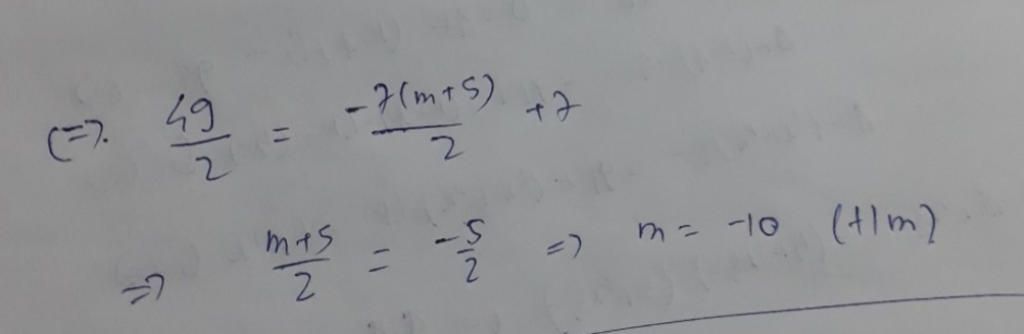 <=>. 49/2 = -7(m+5)/2 +7
=> m+5/2 = -5/2 => m = -10 (t/m)